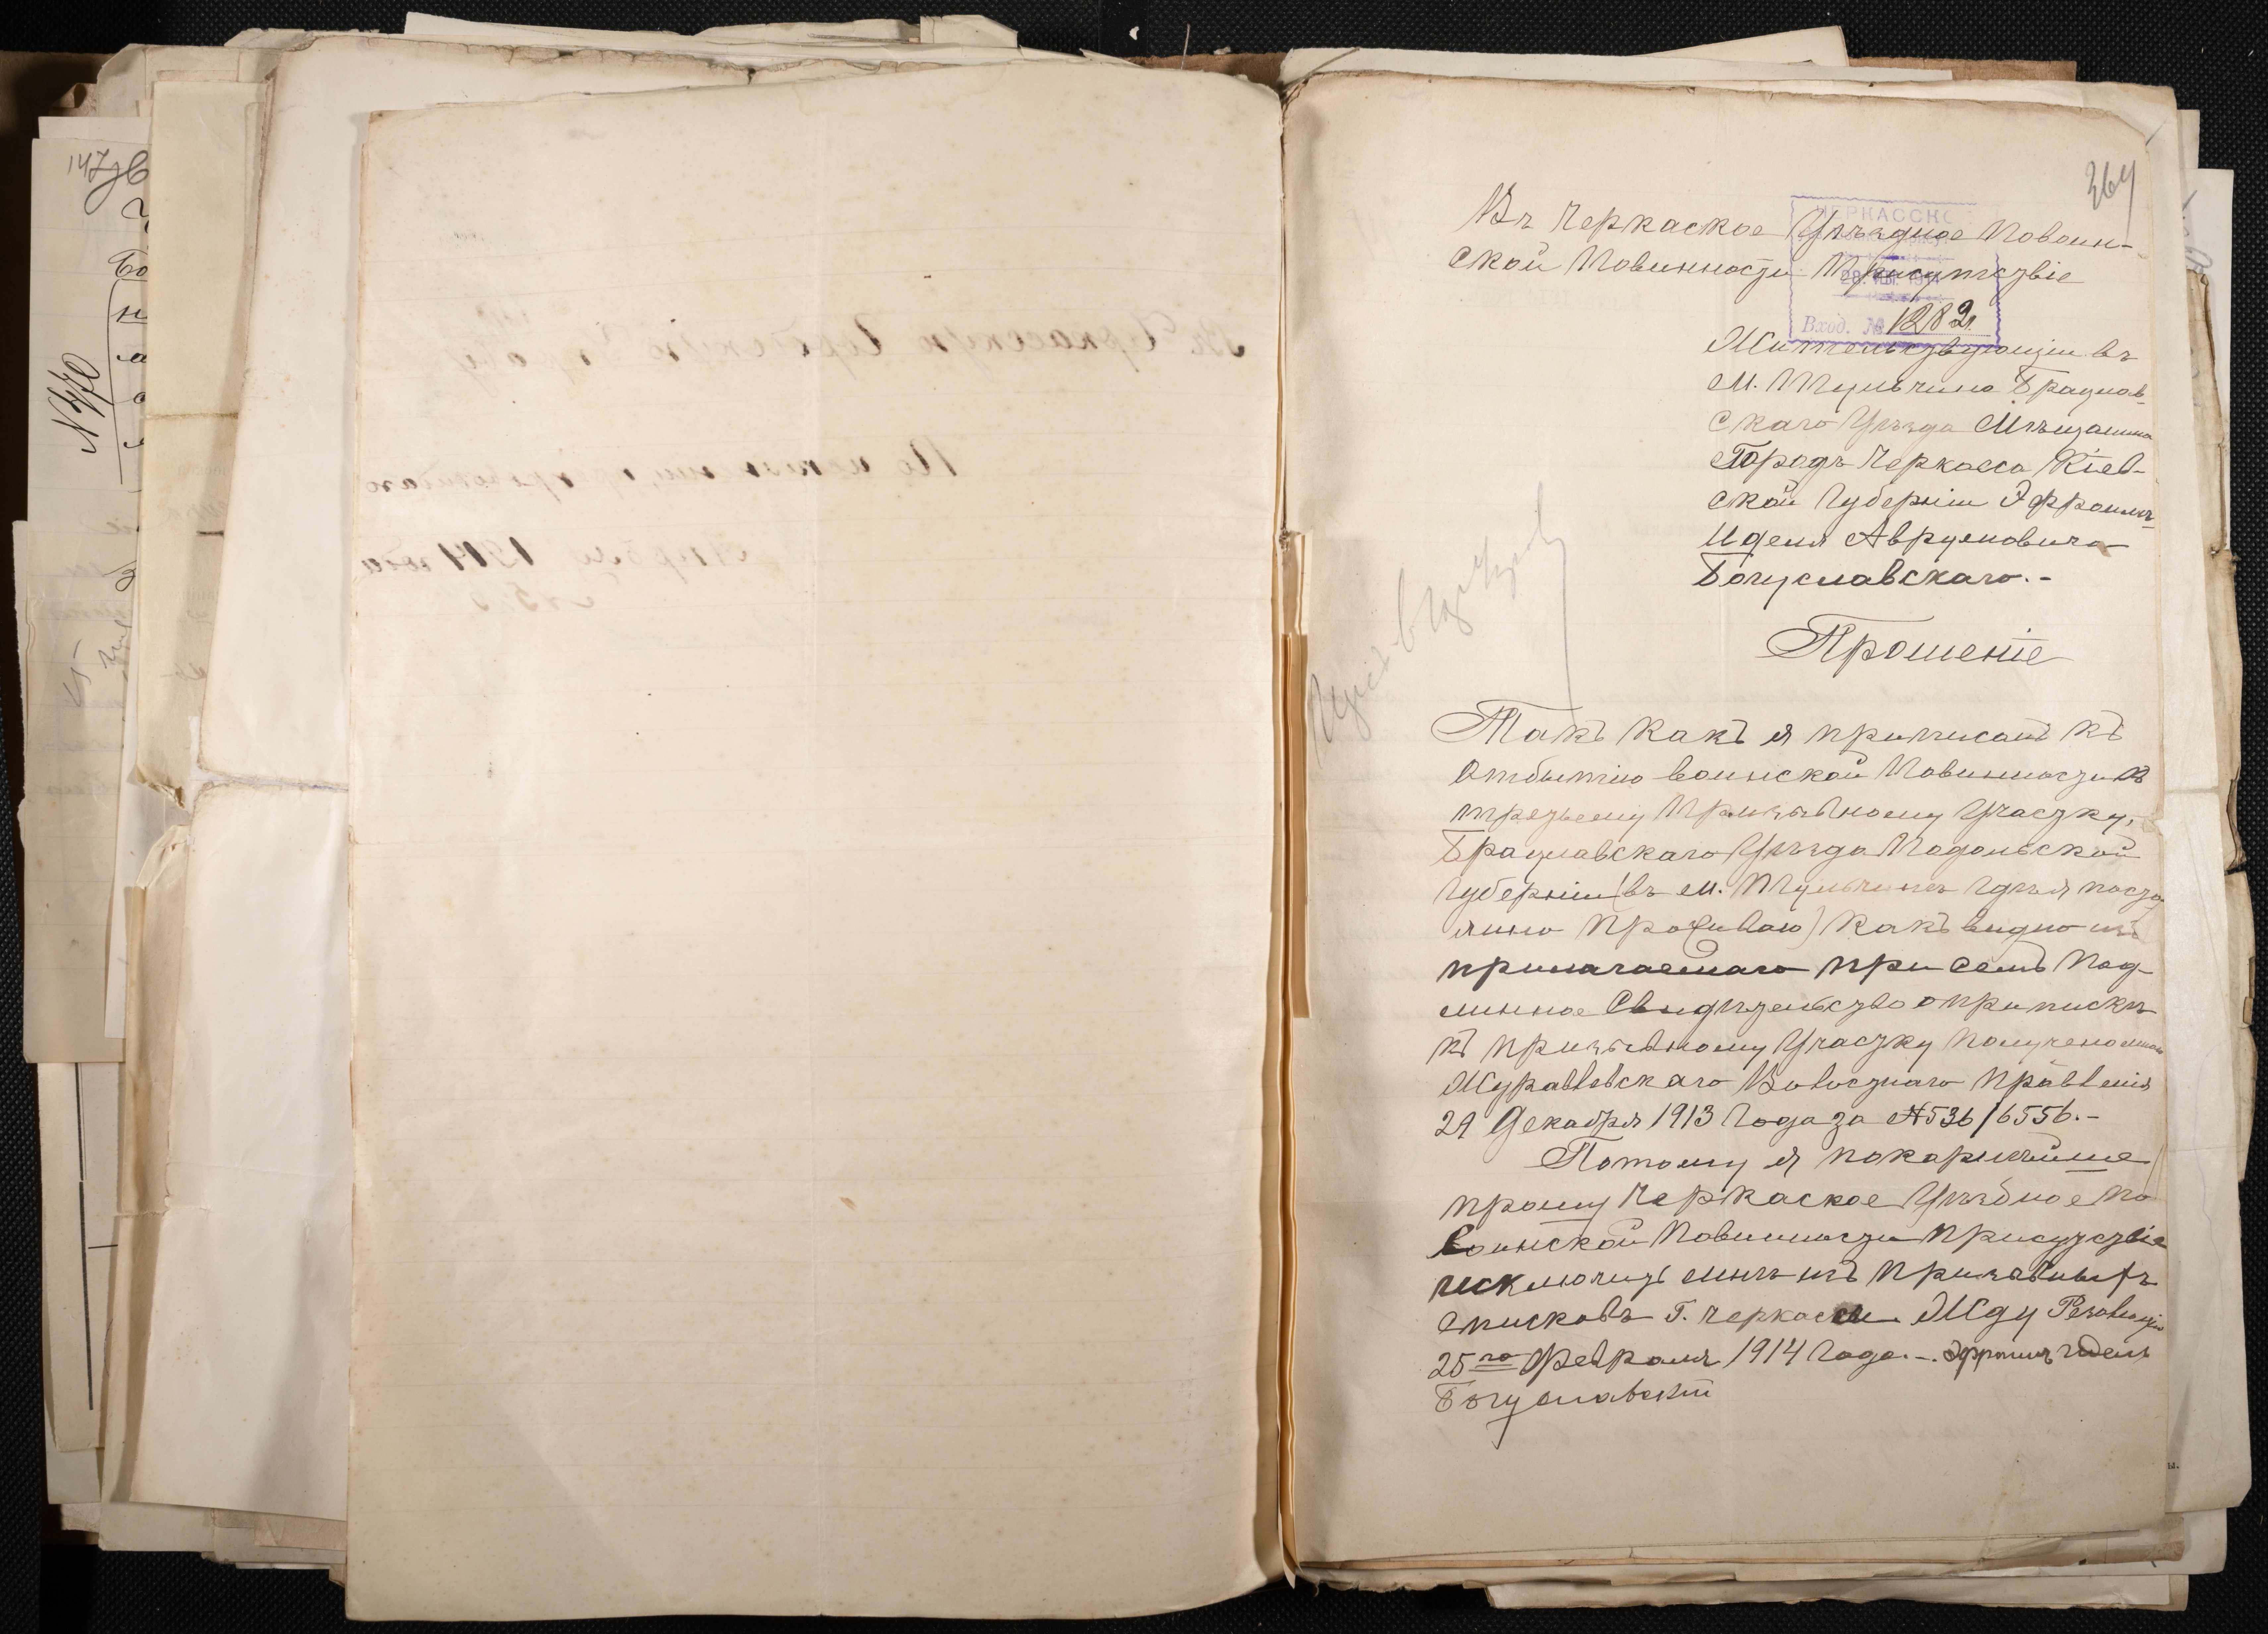 364
Въ Черкаское Уѣздное Повоин-
ской Повинности Присутствіе
ЧЕРКАССК
Вход. № 1282
Жительствующи въ
м. Тульчина Брацлав-
скаго Уѣзда Мѣщанина
Городъ Черкасса Кіев-
ской Губерніи Эфроимъ-
Иделя Аврумовича
Богуславскаго.-
Прошеніе
Такъ какъ я приписанъ къ
Отбытію воинской Повинности къ
третьему Призывному Участку,
Брацлавскаго Уѣзда Подольской
Губерніи (въ м. Тульчинѣ гдѣ я посто
янно Проживаю) Какъ видно изъ
прилагаемаго при семъ Под-
линное Свидѣтельство о приписки
къ призывному Участку Полученное
Журавлевскаго Волостнаго правленія
29 Декабря 1913 Года за №536/6556.-
Потому я покорнѣйше
прошу Черкаское Уѣздное по
Воинской Повинности Присутствіе
исключить минѣ изъ Призывныхъ
списковъ Г. Черкассы. Жду Резолюцію
25го Февраля 1914 Года.-. Эфроимъ Идель
Богуславскій
147
№770
1914 года